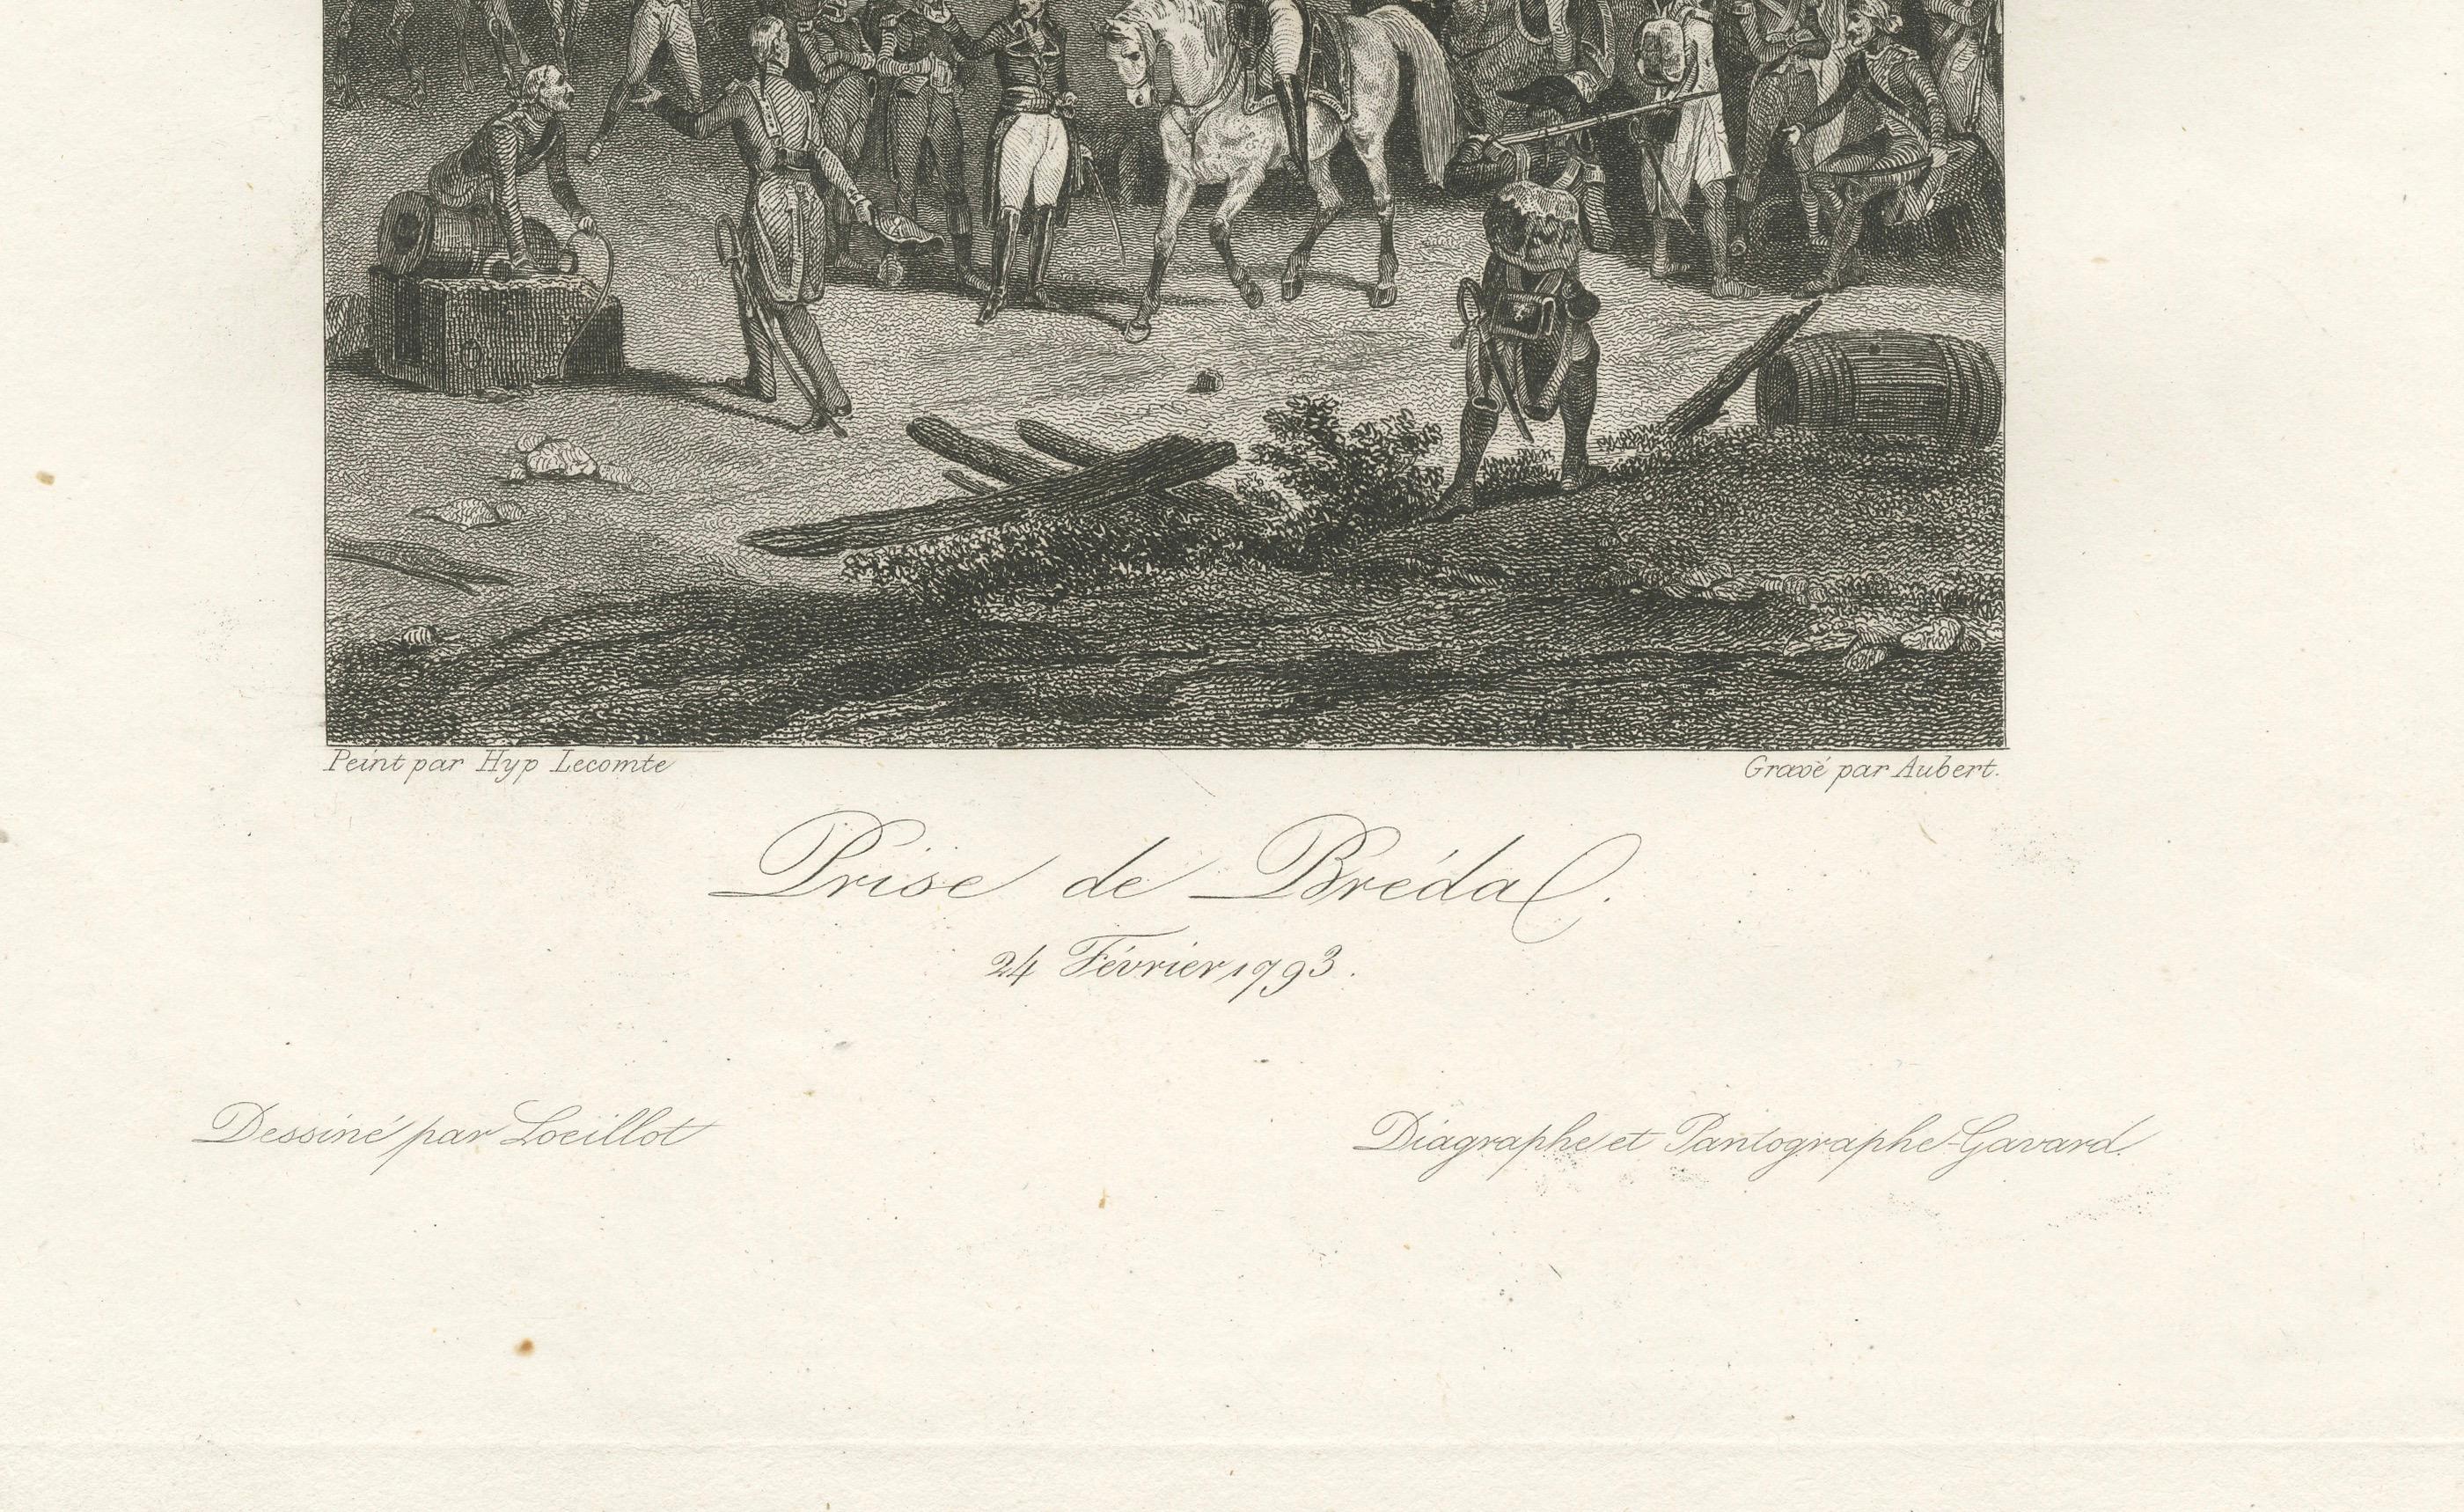 Peint par Hyp Lecomte
Gravé par Aubert.
Prise de Bréda.
24 Février 1793.
Dessiné par Loeillot
Diagraphe et Pantographe-Gavard.